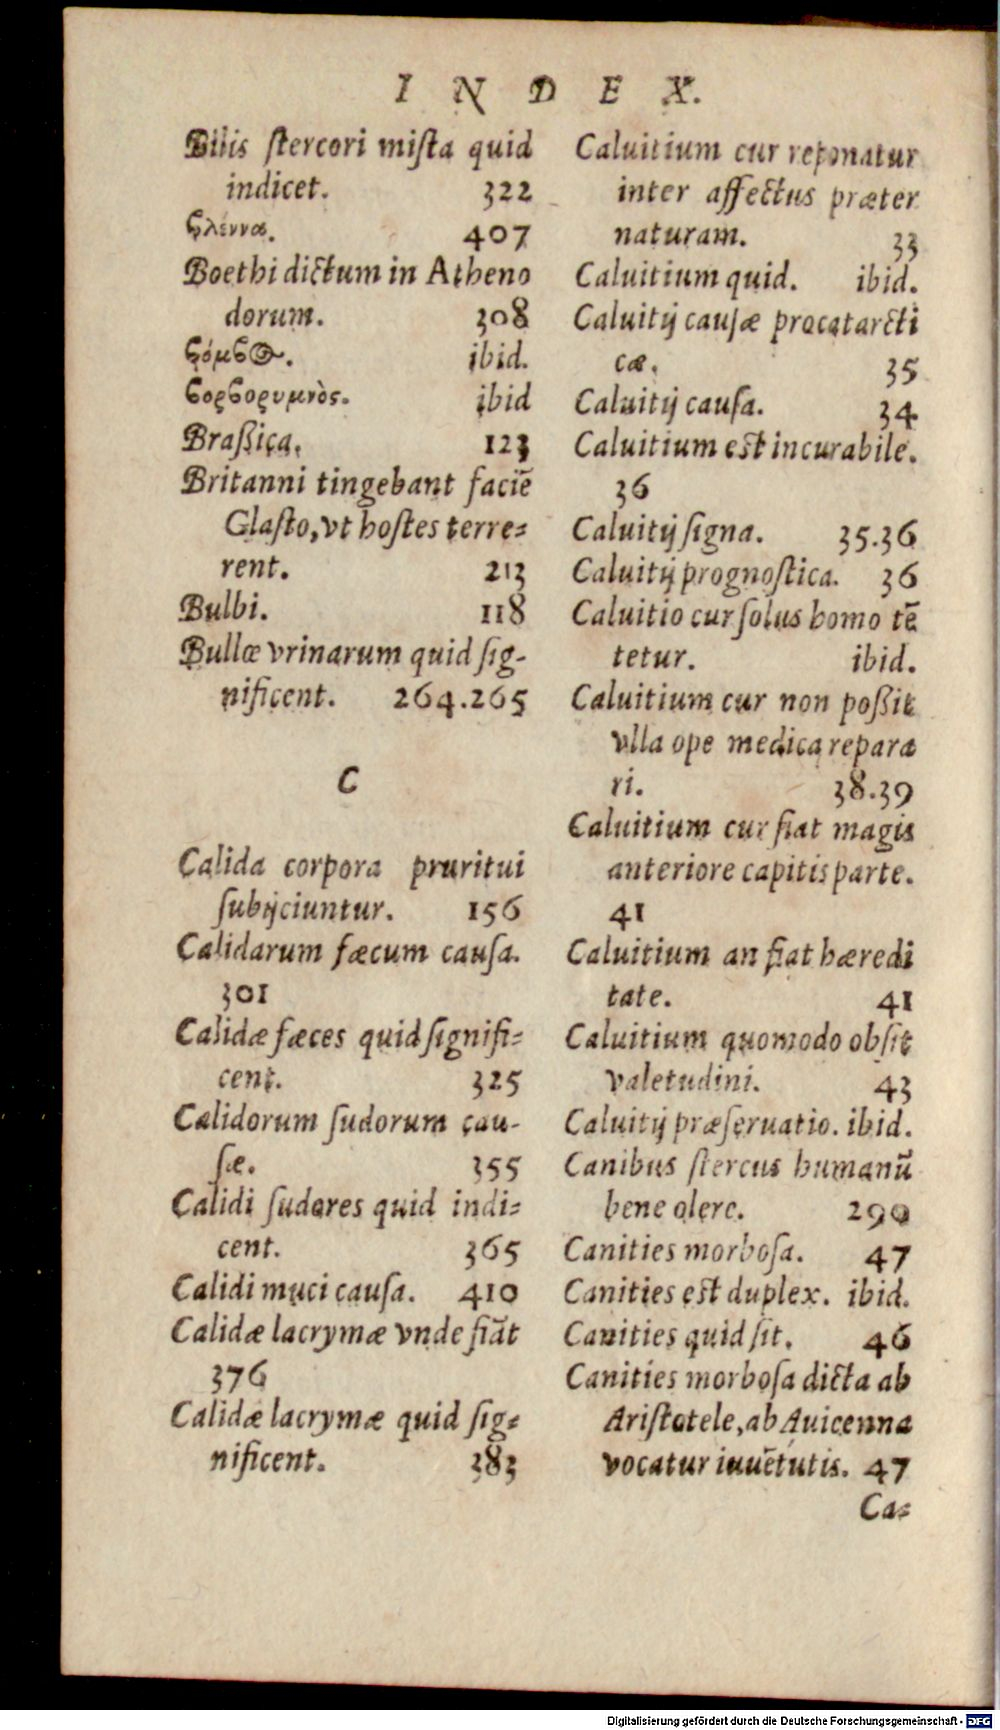 INDEX.
Bilis ſtercori miſta quid
indicet. 322
βλέννα. 407
Boethi dictum in Atheno
dorum. 308
βόμβος. ibid.
βορβορυμνὸς. ibid
Braßica. 123
Britanni tingebant faciē
Glaſto, vt hoſtes terre-
rent. 213
Bulbi. 118
Bullæ vrinarum quid ſig-
nificent. 264.265
C
Calida corpora pruritui
ſubijciuntur. 156
Calidarum fæcum cauſa.
301
Calidæ fæces quid ſignifi-
cent. 325
Calidorum ſudorum cau-
ſæ. 355
Calidi ſudores quid indi-
cent. 365
Calidi muci cauſa. 410
Calidæ lacrymæ vnde fiāt
376
Calidæ lacrymæ quid ſig-
nificent. 383
Caluitium cur reponatur
inter affectus præter
naturam. 33
Caluitium quid. ibid.
Caluitij cauſæ procatarcti
cæ. 35
Caluitij cauſa. 34
Caluitium est incurabile.
36
Caluitij ſigna. 35.36
Caluitij prognoſtica. 36
Caluitio cur ſolus homo tē
tetur. ibid.
Caluitium cur non poßit
vlla ope medica repara
ri. 38.39
Caluitium cur fiat magis
anteriore capitis parte.
41
Caluitium an fiat hæredi
tate. 41
Caluitium quomodo obſit
valetudini. 43
Caluitij præſeruatio. ibid.
Canibus ſtercus humanū
bene olere. 290
Canities morboſa. 47
Canities est duplex. ibid.
Canities quid ſit. 46
Canities morboſa dicta ab
Ariſtotele, ab Auicenna
vocatur iuuētutis. 47
Ca-
Digitalisierung gefördert durch die Deutsche Forschungsgemeinschaft - DFG